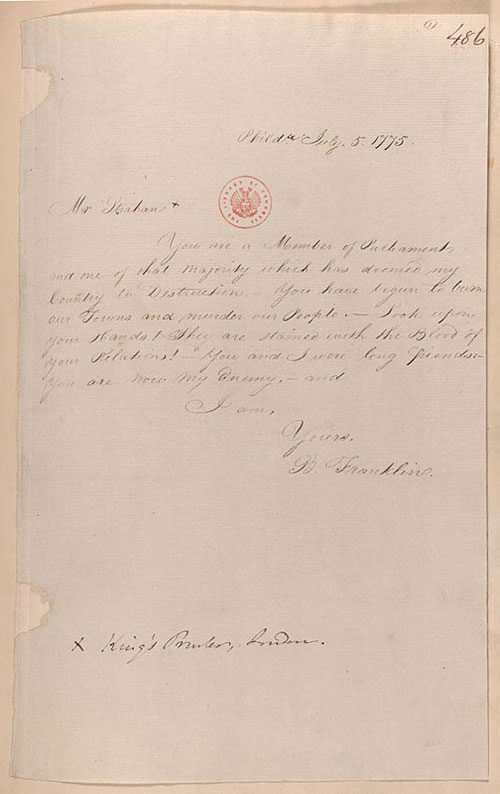 486
Philad.ᵃ July. 5. 1775.
Mr Strahan +
You are a Member of Parliament,
and one of that Majority which has doomed my
Country to Destruction. — You have begun to burn
our Towns and murder our People. — Look upon
your Hands! They are stained with the Blood of
your Relations! — You and I were long friends: —
You are now my Enemy, — and
I am,
Yours,
B. Franklin.
+ King's Printer, London.